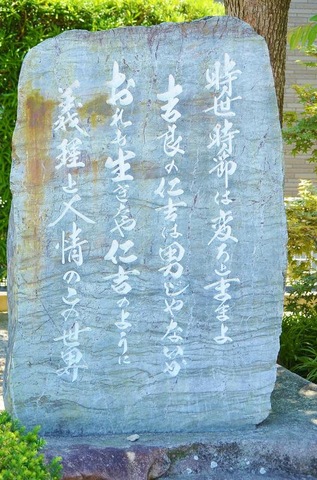 時世時節は変ろとまゝよ
吉良の仁吉は男じゃないか
おれも生きたや仁吉のように
義理と人情のこの世界